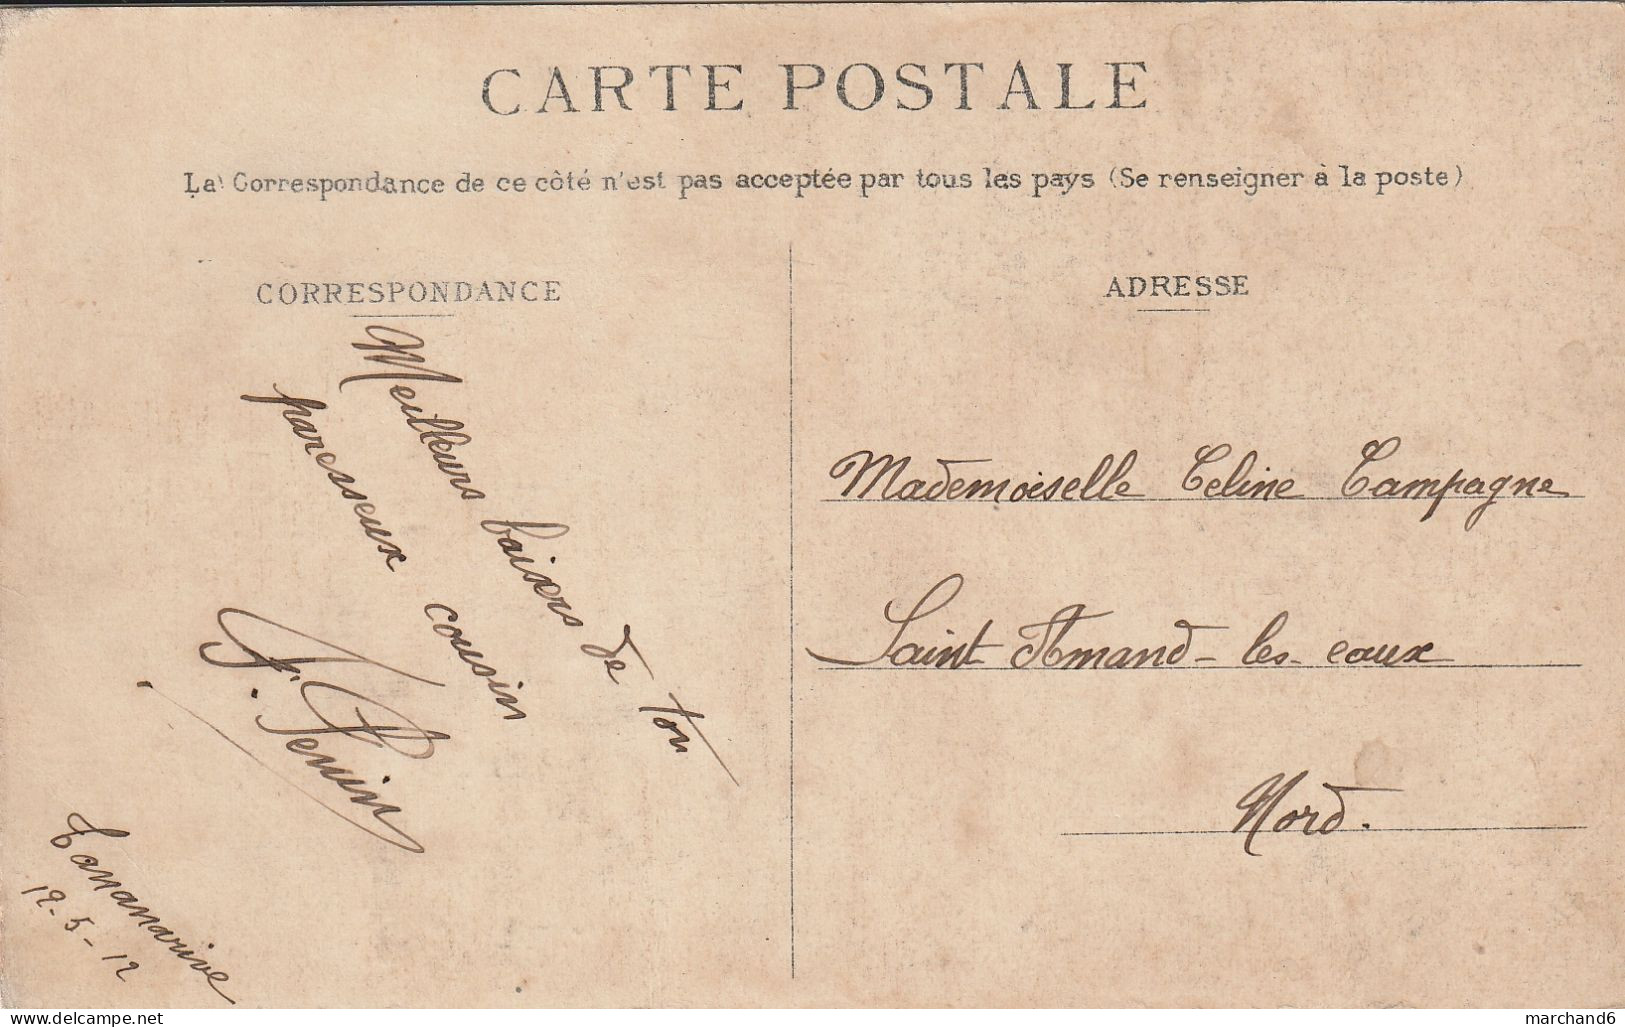 CARTE POSTALE
La Correspondance de ce côté n'est pas acceptée par tous les pays (Se renseigner à la poste)
CORRESPONDANCE
Meilleurs baisers de ton
paresseux cousin
Tananarive
12-5-12
ADRESSE
Mademoiselle Celine Campagne
Saint Amand-les-eaux
Nord.
www.delcampe.net
marchand6